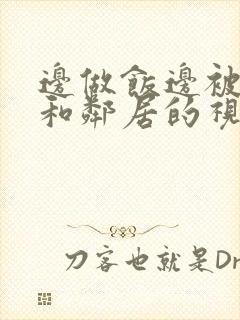 邊做飯邊被
和鄰居的視
刀客也就是Dr